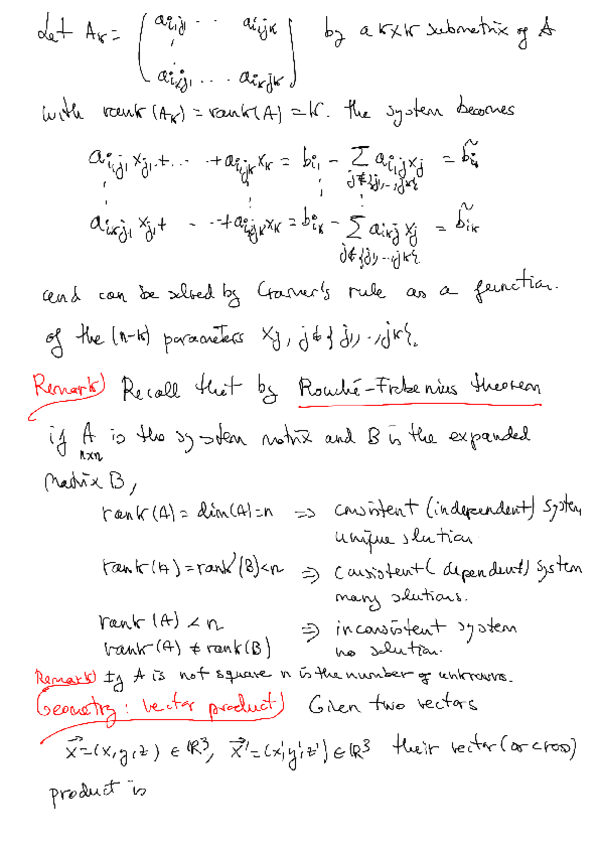 Let A_k = ( a_{i₁j₁} ... a_{i₁j_k} ; ⋮ ; a_{i_kj₁} ... a_{i_kj_k} ) by a k×k submatrix of A
with rank(A_k) = rank(A) = k. the system becomes
a_{i₁j₁} x_{j₁} + ... + a_{i₁j_k} x_k = b_{i₁} - ∑_{j∉{j₁,...,j_k}} a_{i₁j} x_j = b̃_{i₁}
⋮ ⋮ ⋮ ⋮
a_{i_kj₁} x_{j₁} + ... + a_{i_kj_k} x_k = b_{i_k} - ∑_{j∉{j₁,...,j_k}} a_{i_kj} x_j = b̃_{i_k}
and can be solved by Cramer's rule as a function
of the (n-k) parameters x_j, j∉{j₁,...,j_k}.
Remark) Recall that by Rouché-Frobenius theorem
if A_{n×n} is the system matrix and B is the expanded
matrix B,
rank(A) = dim(A) = n ⇒ consistent (independent) system
unique solution
rank(A) = rank(B) < n ⇒ consistent (dependent) system
many solutions.
rank(A) < n
rank(A) ≠ rank(B) ⇒ inconsistent system
no solution.
Remark) If A is not square n is the number of unknowns.
Geometry: vector product) Given two vectors
x⃗ = (x, y, z) ∈ ℝ³, x⃗' = (x', y', z') ∈ ℝ³ their vector (or cross)
product is